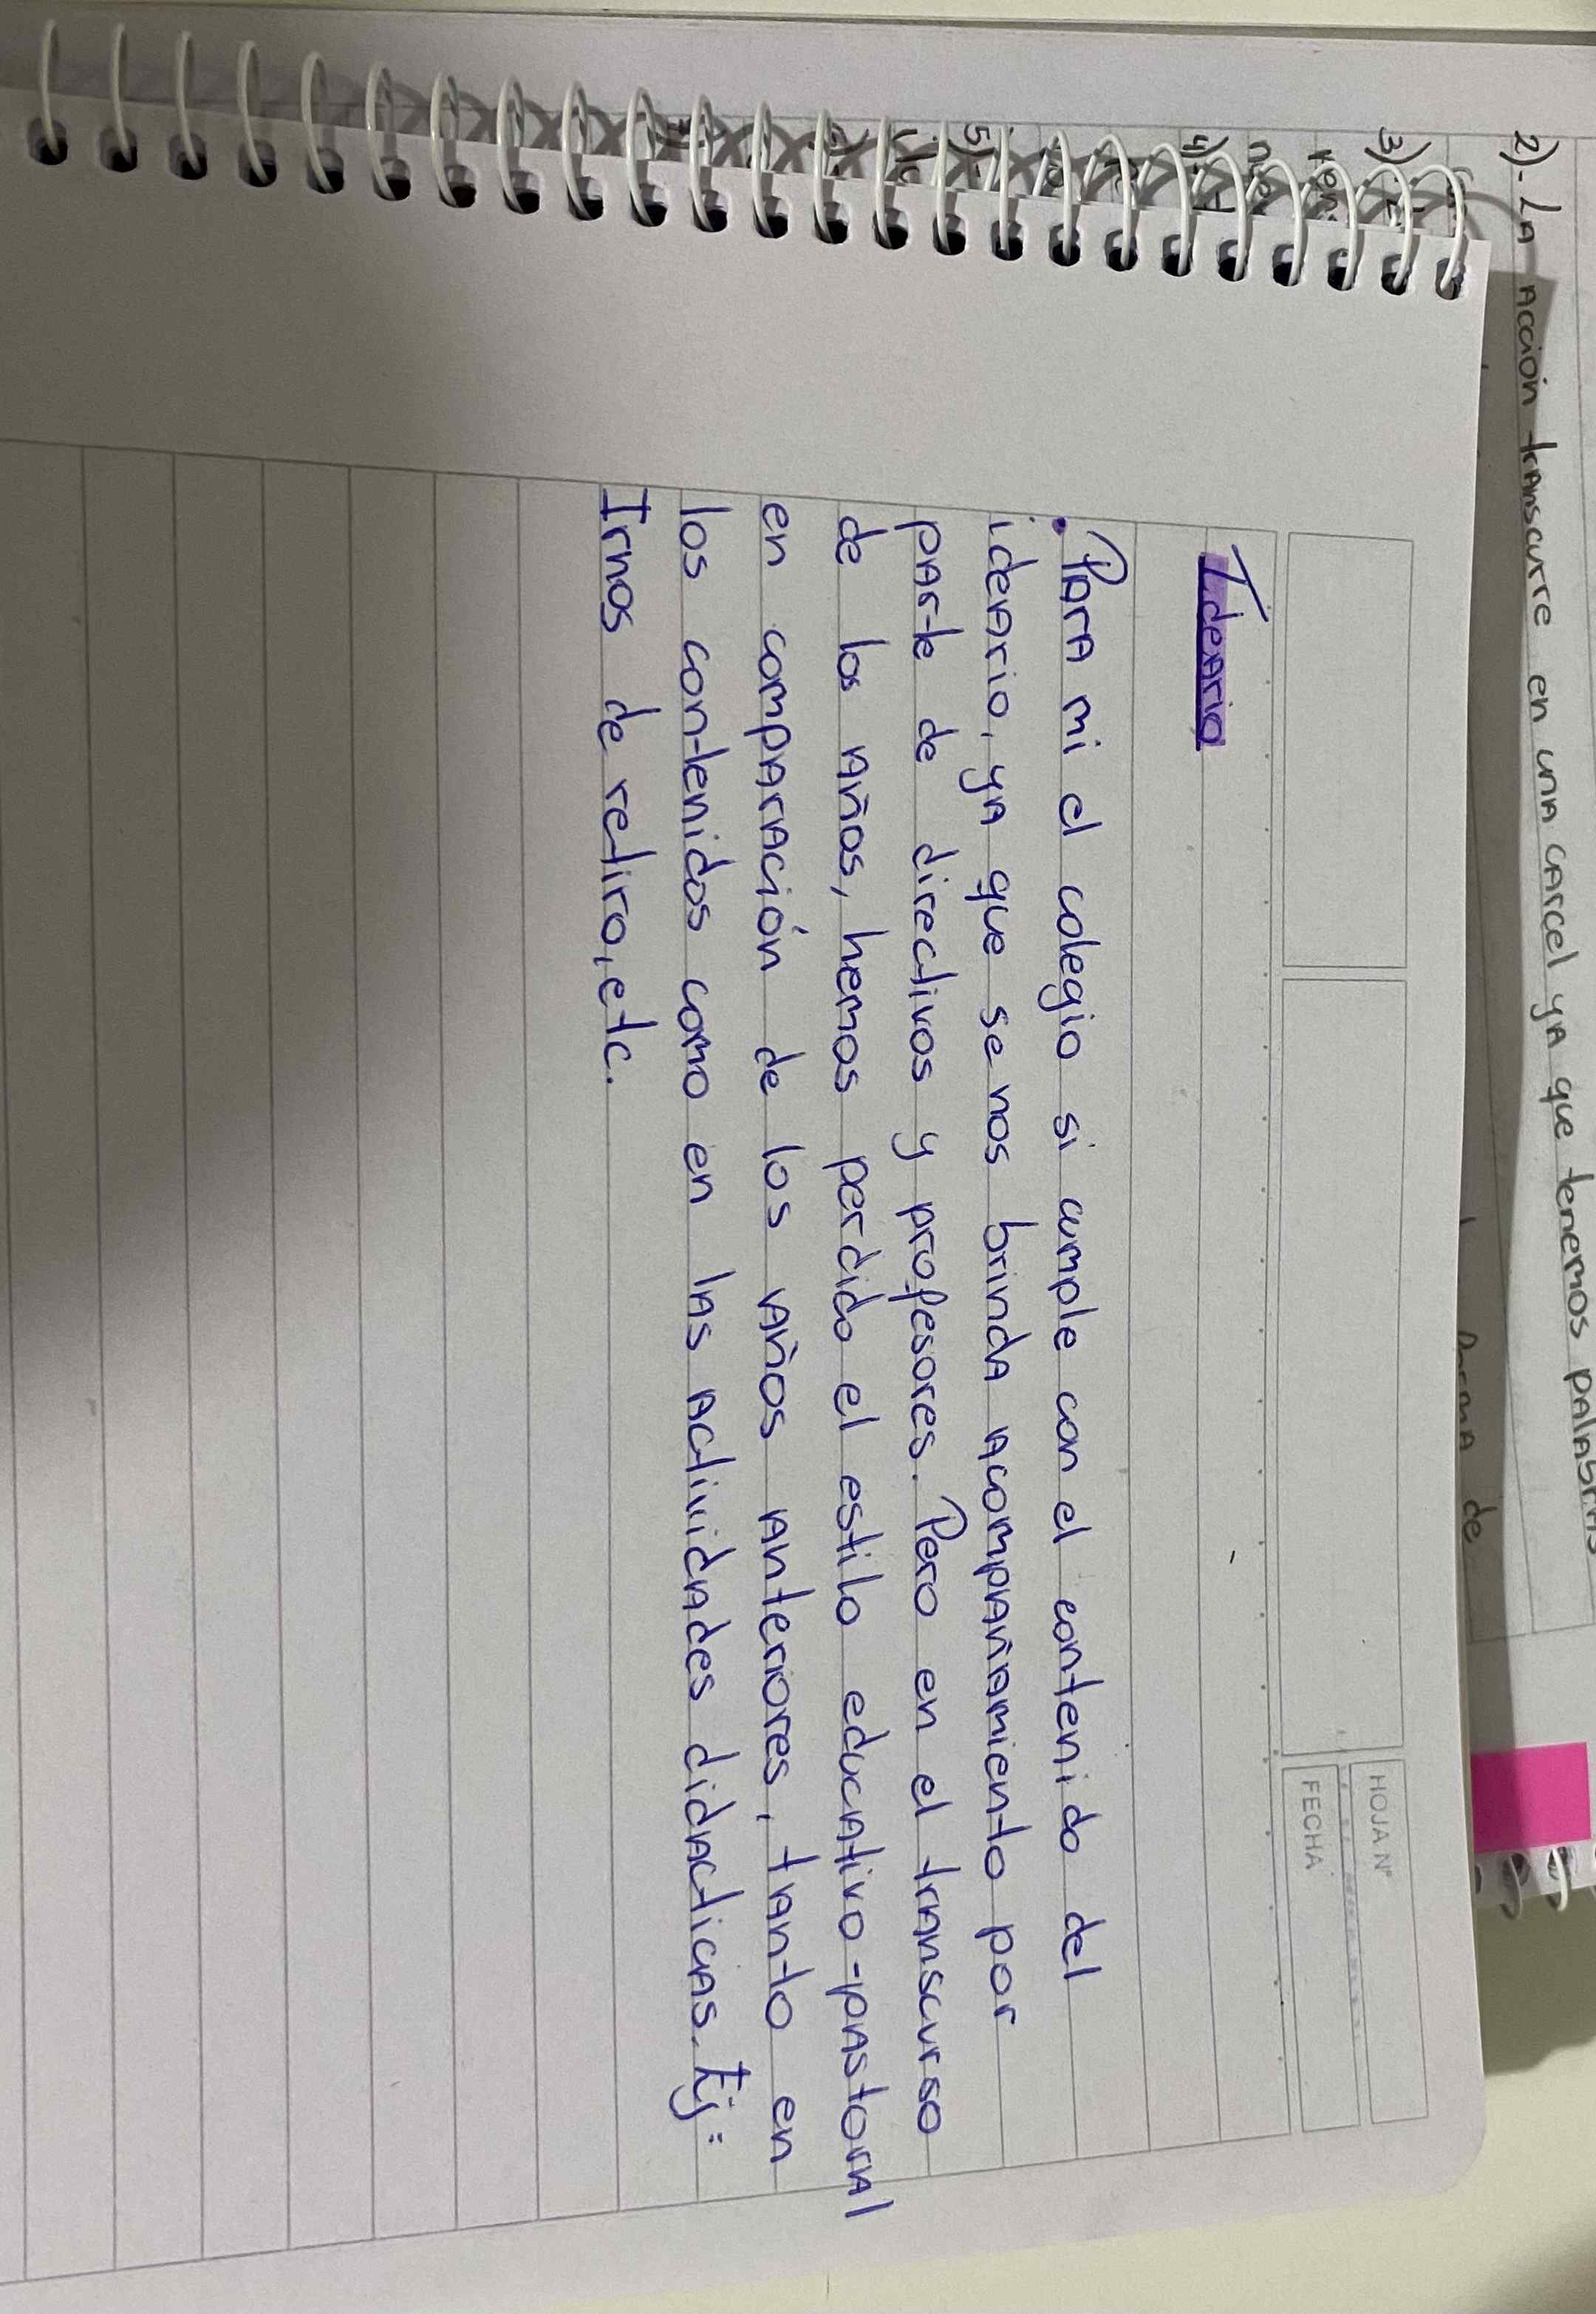 2)- LA Acción trAnscurre en unA cArcel yA que tenemos pAlAbrAs
de
3)
4)-
5)-
HOJA Nº
FECHA
IdeArio
• PArA mi el colegio si cumple con el contenido del
ideArio, yA que se nos brindA AcompAñAmiento por
pArte de directivos y profesores. Pero en el trAnscurso
de los Años, hemos perdido el estilo educAtivo-pAstorAl
en compArAción de los Años Anteriores, tAnto en
los contenidos como en lAs ActividAdes didActicAs. Ej:
Irnos de retiro, etc.